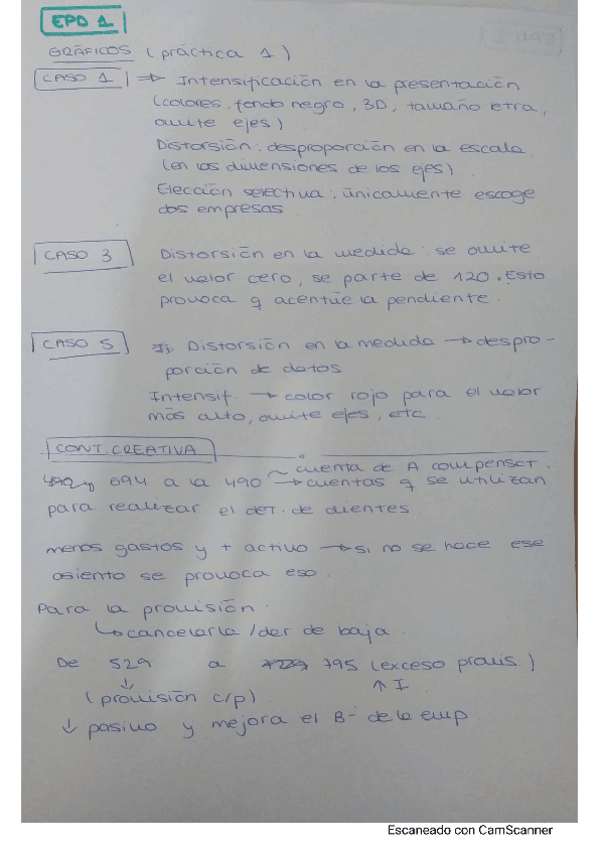 EPD 1
GRÁFICOS (práctica 1)
CASO 1 ⇒ Intensificación en la presentación
(colores, fondo negro, 3D, tamaño letra,
omite ejes)
Distorsión: desproporción en la escala
(en las dimensiones de los ejes)
Elección selectiva: únicamente escoge
dos empresas
CASO 3 Distorsión en la medida: se omite
el valor cero, se parte de 120. Esto
provoca q acentúe la pendiente.
CASO 5 Distorsión en la medida → despro-
porción de datos
Intensif. → color rojo para el valor
más alto, omite ejes, etc
CONT. CREATIVA
cuenta de A compensat.
694 a la 490 → cuentas q se utilizan
para realizar el det. de clientes
menos gastos y + activo → si no se hace ese
asiento se provoca eso.
Para la provisión:
↳ cancelarla / dar de baja.
De 529 a 795 (exceso provis)
↓ ↑ I
(provisión c/p)
↓ pasivo y mejora el Bº de la emp.
Escaneado con CamScanner